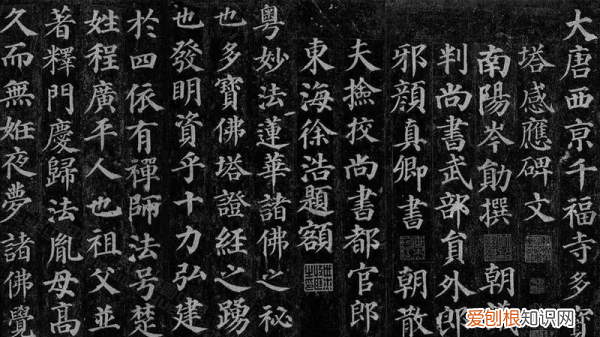 大唐西京千福寺多寶
塔感應碑文
南陽岑勛撰 朝議
判尚書武部員外郎
邪顏真卿書 朝散
夫撿挍尚書都官郎
東海徐浩題額
粵妙法蓮華諸佛之秘
也多寶佛塔證經之踴
也發明資乎十力弘建
於四依有禪師法号楚
姓程廣平人也祖父並
著釋門慶歸法胤母高
久而無姙夜夢諸佛覺
爱刨根知识网